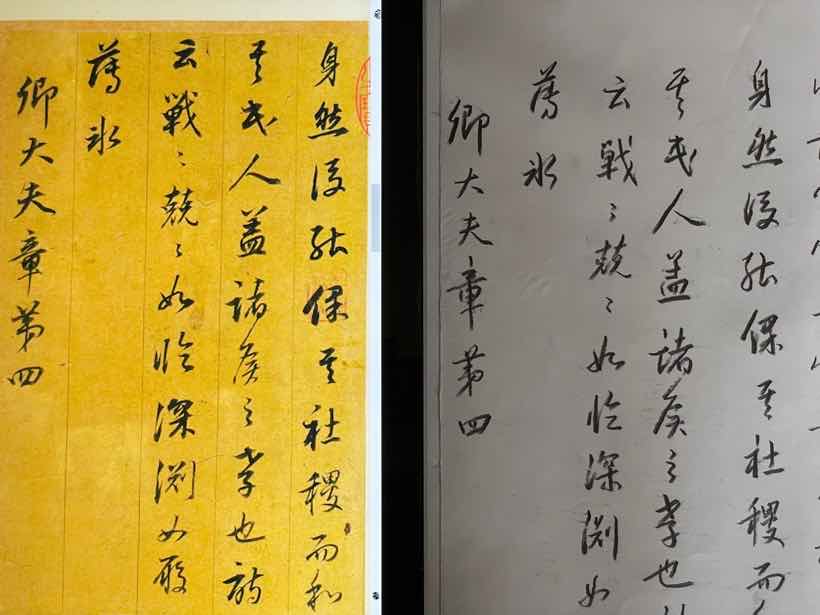 身然後能保其社稷而和
其民人蓋諸侯之孝也詩
云戰〻兢〻如臨深淵如履
薄冰
卿大夫章第四
身然後能保其社稷而
其民人蓋諸侯之孝也
云戰〻兢〻如臨深淵如
薄冰
卿大夫章第四